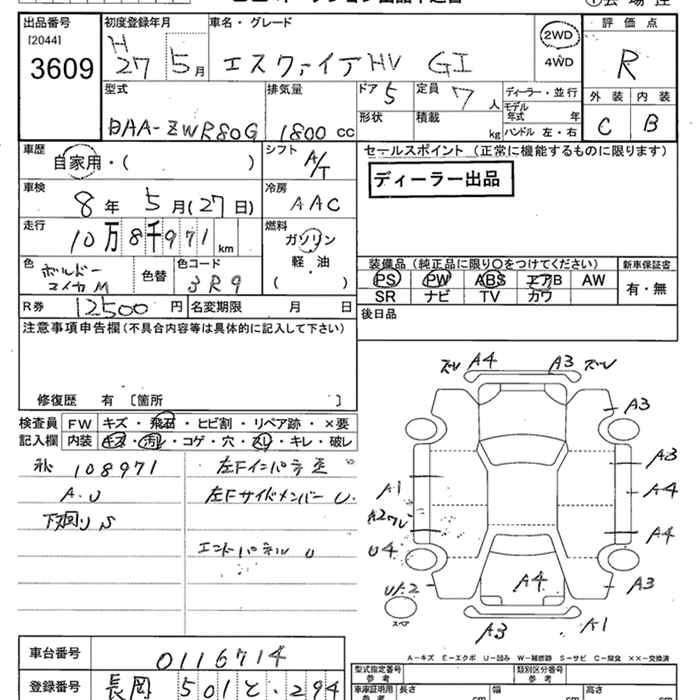 出品番号 初度登録年月 車名・グレード 評価点
[2044] H 2WD
3609 27 5月 エスクァイア HV GI 4WD R
型式 排気量 ドア 5 定員 7 人 ディーラー・並行 外装 内装
モデル年式 年
DAA-ZWR80G 1800 cc 形状 積載 kg ハンドル 左・右 C B
車歴 シフト セールスポイント (正常に機能するものに限ります)
自家用・( ) A/T ディーラー出品
車検 冷房
8年 5月(27日) AAC
走行 燃料
10万8千971km ガソリン
軽・油
色 色替 色コード ( ) 装備品 (純正品に限り○をつけてください) 新車保証書
ボルドーマイカM 3R9 PS PW ABS エアB AW 有・無
R券 12500円 名変期限 月 日 SR ナビ TV カワ
注意事項申告欄(不具合内容等は具体的に記入して下さい) 後日品
修復歴 有 〔箇所 〕
検査員 FW キズ・飛石・ヒビ割・リペア跡・×要
記入欄 内装 キズ・汚レ・コゲ・穴・スレ・キレ・破レ
108971 左Fインパネ
A.U 左Fサイドメンバー U.
下廻りS
エンドパネル U
ズレ A4 A3 ズレ
A3
A1 A3
A4
A2ワレ A4
U4
A4 A3
U12
スペア
A3 A1
A-キズ E-エクボ U-凹み W-補修跡 S-サビ C-腐食 ××-交換済
車台番号 0116714
型式指定番号 参考 類別区分番号 参考
登録番号 長岡 501 と・294
車庫証明用 参考 長さ cm 幅 cm 高さ cm